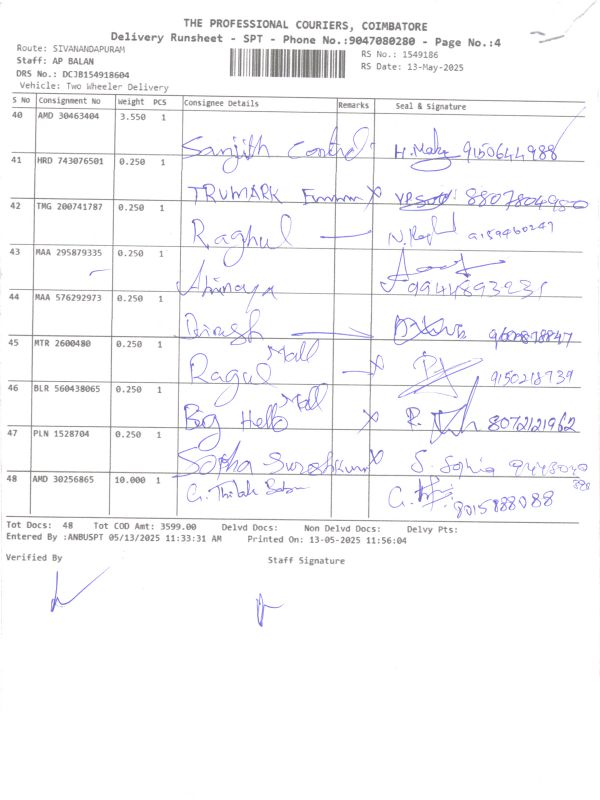 THE PROFESSIONAL COURIERS, COIMBATORE
Delivery Runsheet - SPT - Phone No.:9047080280 - Page No.:4
Route: SIVANANDAPURAM
RS No.: 1549186
Staff: AP BALAN
RS Date: 13-May-2025
DRS No.: DCJB154918604
Vehicle: Two Wheeler Delivery
S No Consignment No Weight PCS Consignee Details Remarks Seal & Signature
40 AMD 30463404 3.550 1 Sanjith Control 9150644988
41 HRD 743076501 0.250 1 TRUMARK
42 TMG 200741787 0.250 1 Raghul
43 MAA 295879335 0.250 1 Abinaya 9944893231
44 MAA 576292973 0.250 1
45 MTR 2600480 0.250 1 Ragul Mall 9150218739
46 BLR 560438065 0.250 1 Big Hello Mall 8072121962
47 PLN 1528704 0.250 1 Sopha Sureshkumar
48 AMD 30256865 10.000 1 G. Thilak 8015888088
Tot Docs: 48 Tot COD Amt: 3599.00 Delvd Docs: Non Delvd Docs: Delvy Pts:
Entered By :ANBUSPT 05/13/2025 11:33:31 AM Printed On: 13-05-2025 11:56:04
Verified By
Staff Signature